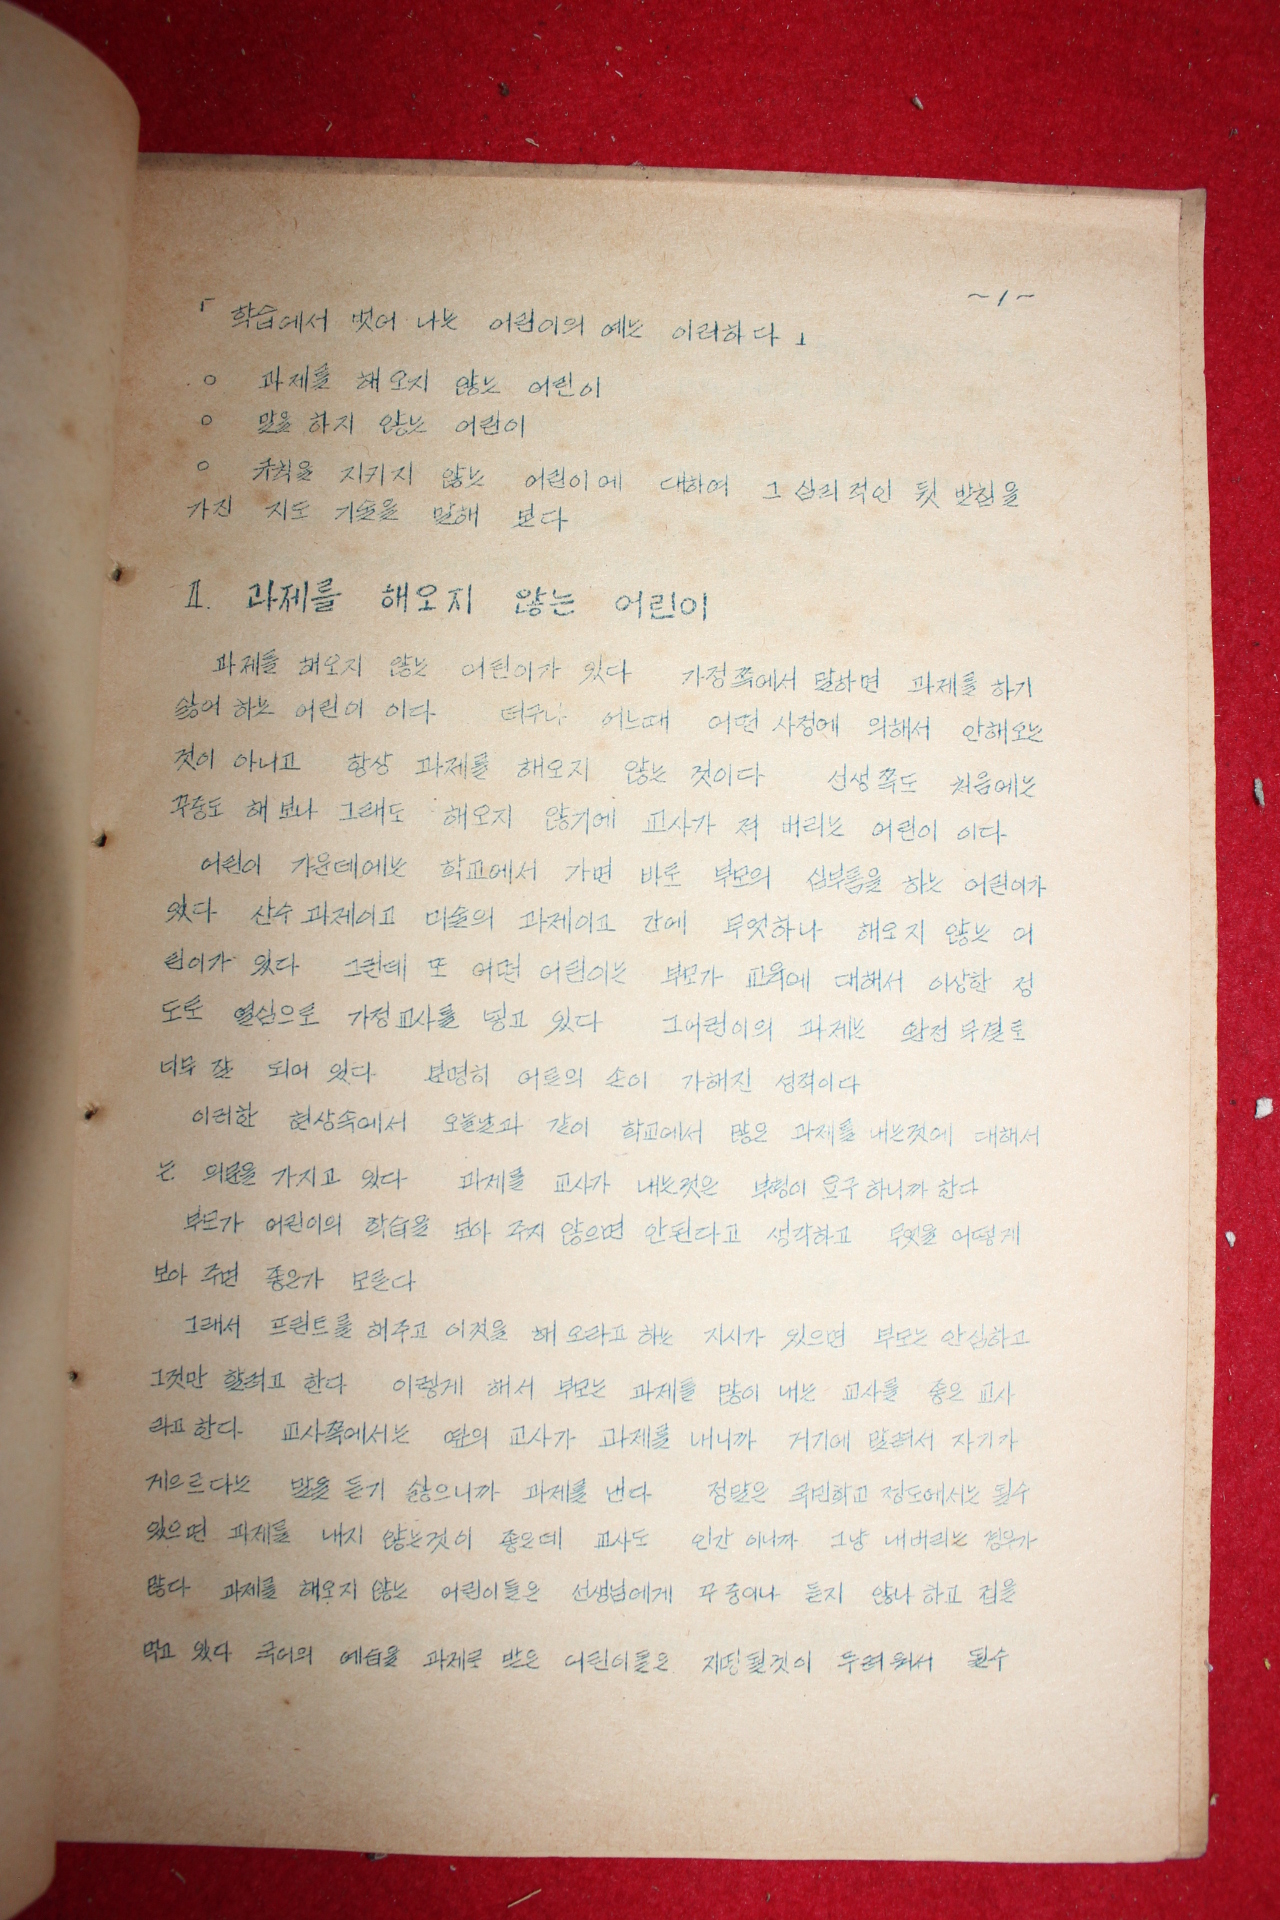 ~1~
「 학습에서 벗어 나는 어린이의 예는 이러하다 」
○ 과제를 해오지 않는 어린이
○ 말을 하지 않는 어린이
○ 규칙을 지키지 않는 어린이에 대하여 그 심리적인 뒷 받힘을
가진 지도 기술을 말해 본다
Ⅱ. 과제를 해오지 않는 어린이
과제를 해오지 않는 어린이가 있다 가정쪽에서 말하면 과제를 하기
싫어 하는 어린이 이다 더우나 어느때 어떤 사정에 의해서 안해오는
것이 아니고 항상 과제를 해오지 않는 것이다 선생쪽도 처음에는
꾸중도 해 보나 그래도 해오지 않기에 교사가 져 버리는 어린이 이다
어린이 가운데에는 학교에서 가면 바로 부모의 심부름을 하는 어린이가
있다 산수 과제이고 미술의 과제이고 간에 무엇하나 해오지 않는 어
린이가 있다 그런데 또 어떤 어린이는 부모가 교육에 대해서 이상한 정
도로 열심으로 가정교사를 넣고 있다 그어린이의 과제는 완전무결로
너무 잘 되어 있다 분명히 어른의 손이 가해진 성적이다
이러한 현상속에서 오늘날과 같이 학교에서 많은 과제를 내는것에 대해서
는 의문을 가지고 있다 과제를 교사가 내는것은 부형이 요구하니까 한다
부모가 어린이의 학습을 보아 주지 않으면 안된다고 생각하고 무엇을 어떻게
보아 주면 좋은가 모른다
그래서 프린트를 해주고 이것을 해 오라고 하는 지시가 있으면 부모는 안심하고
그것만 할려고 한다 이렇게 해서 부모는 과제를 많이 내는 교사를 좋은 교사
라고 한다 교사쪽에서는 옆의 교사가 과제를 내니까 거기에 말려서 자기가
게으르다는 말을 듣기 싫으니까 과제를 낸다 정말은 국민학교 정도에서는 될수
있으면 과제를 내지 않는것이 좋은데 교사도 인간 이니까 그냥 내버리는 경우가
많다 과제를 해오지 않는 어린이들은 선생님에게 꾸중이나 듣지 않나 하고 겁을
먹고 있다 국어의 예습을 과제로 받은 어린이들은 지명될것이 두려워서 될수